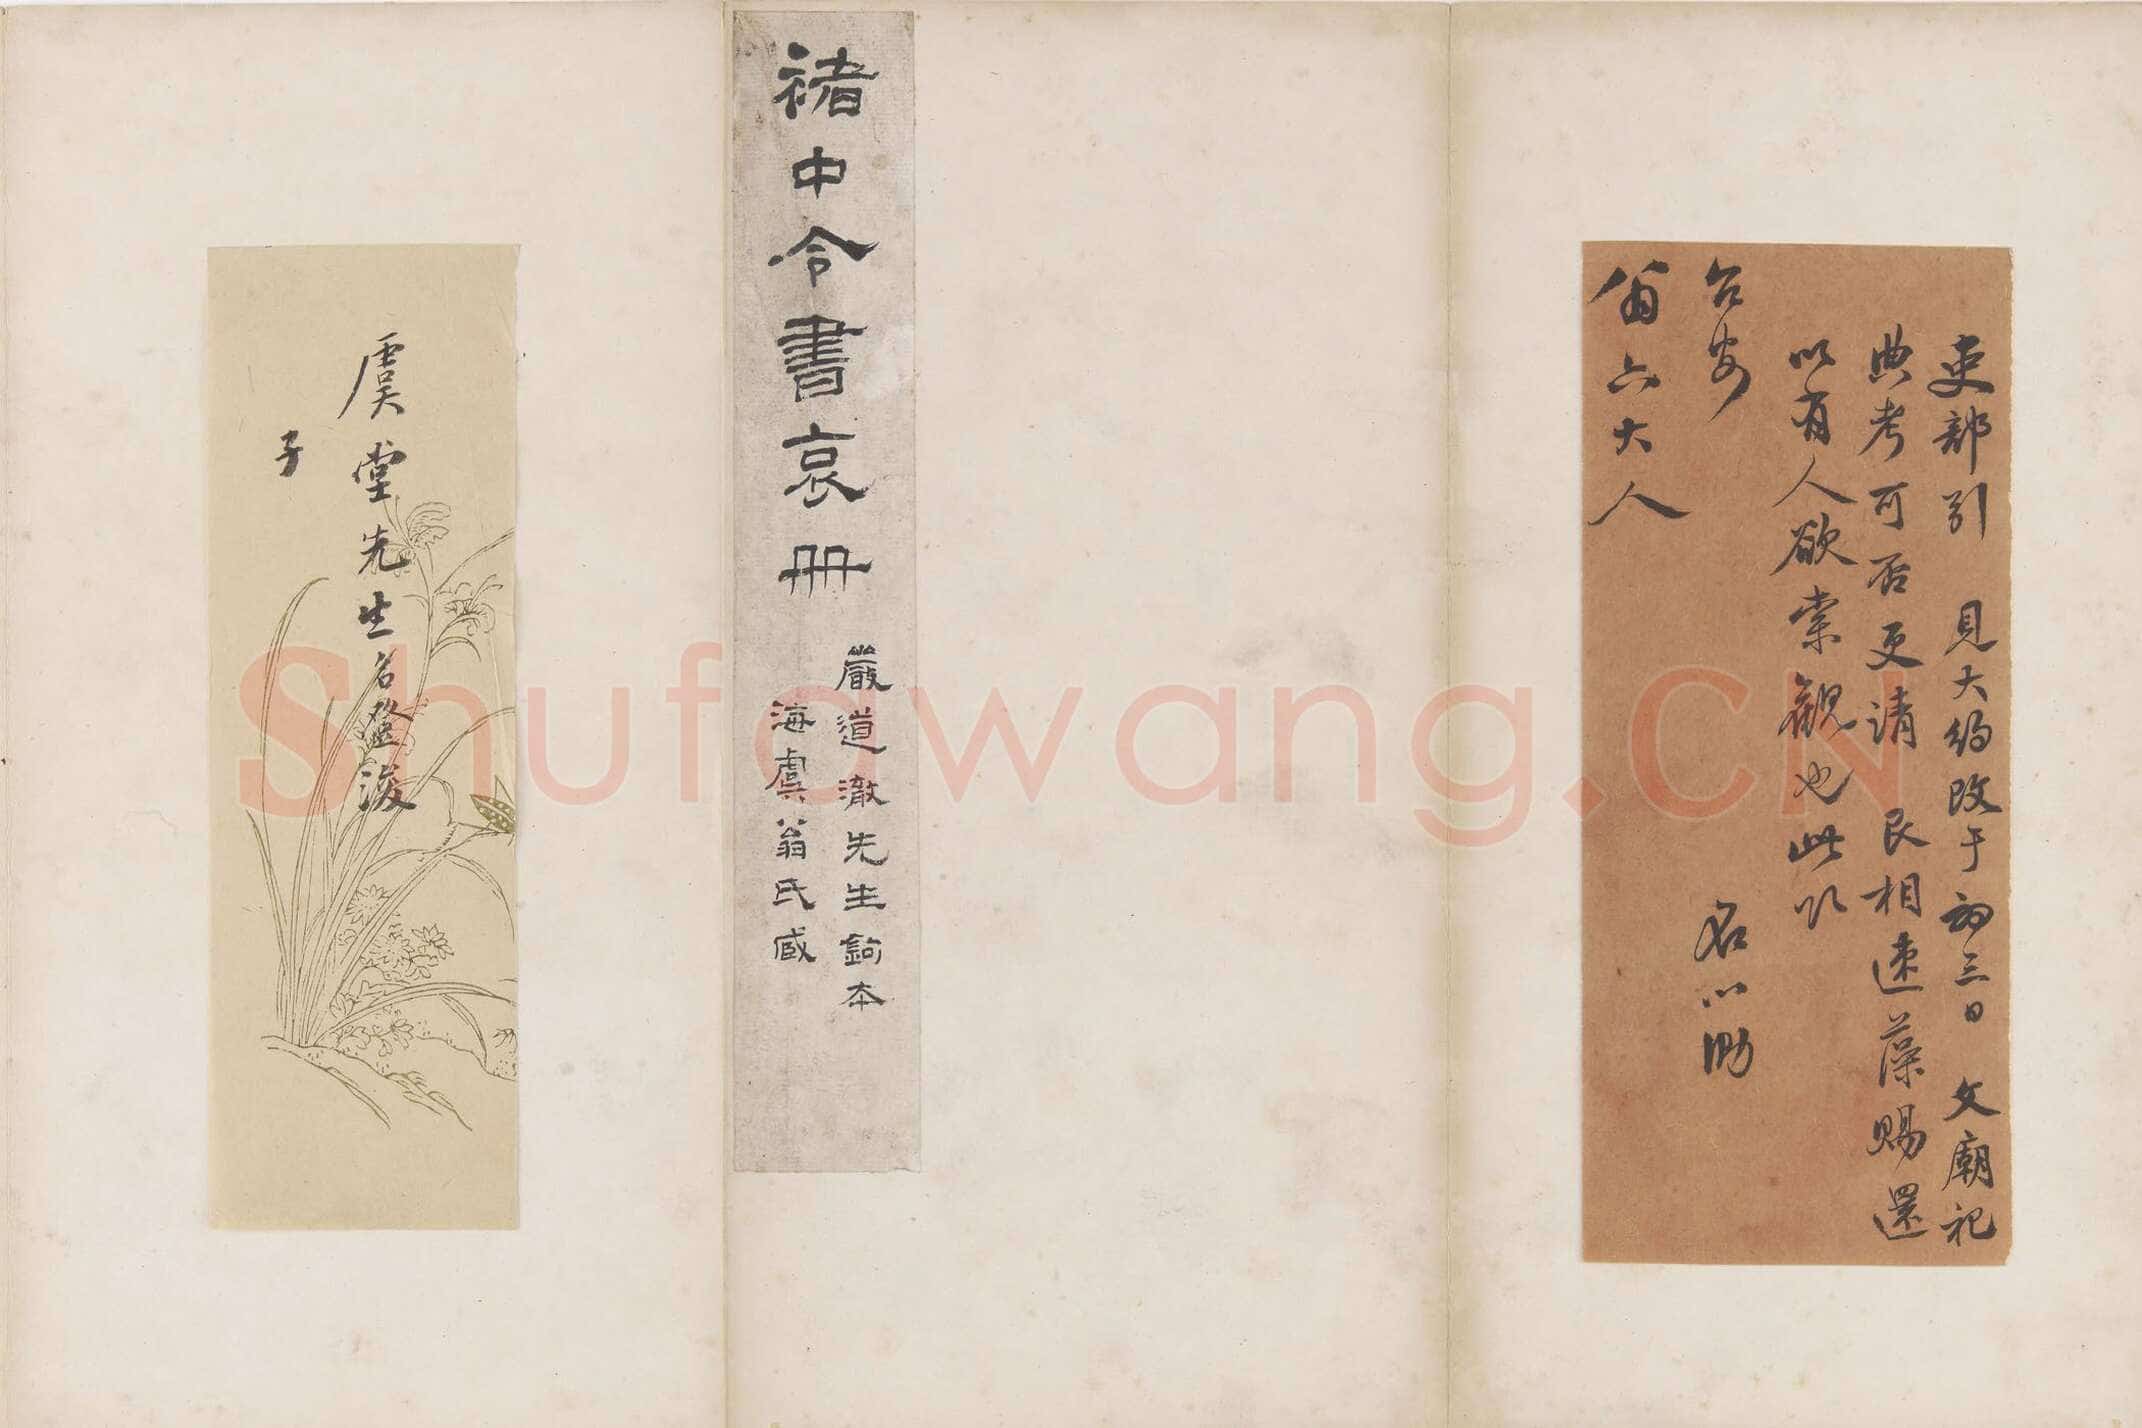 吏部引 見大約改于初三日 文廟祀
典考可否更請 艮相速藻賜還
以有人欲索觀也此以
台安 名心泐
翁六大人
褚中令書哀冊
嚴道澈先生鉤本
海虞翁氏臧
虞堂先生名登浚
子
Shufawang.CN